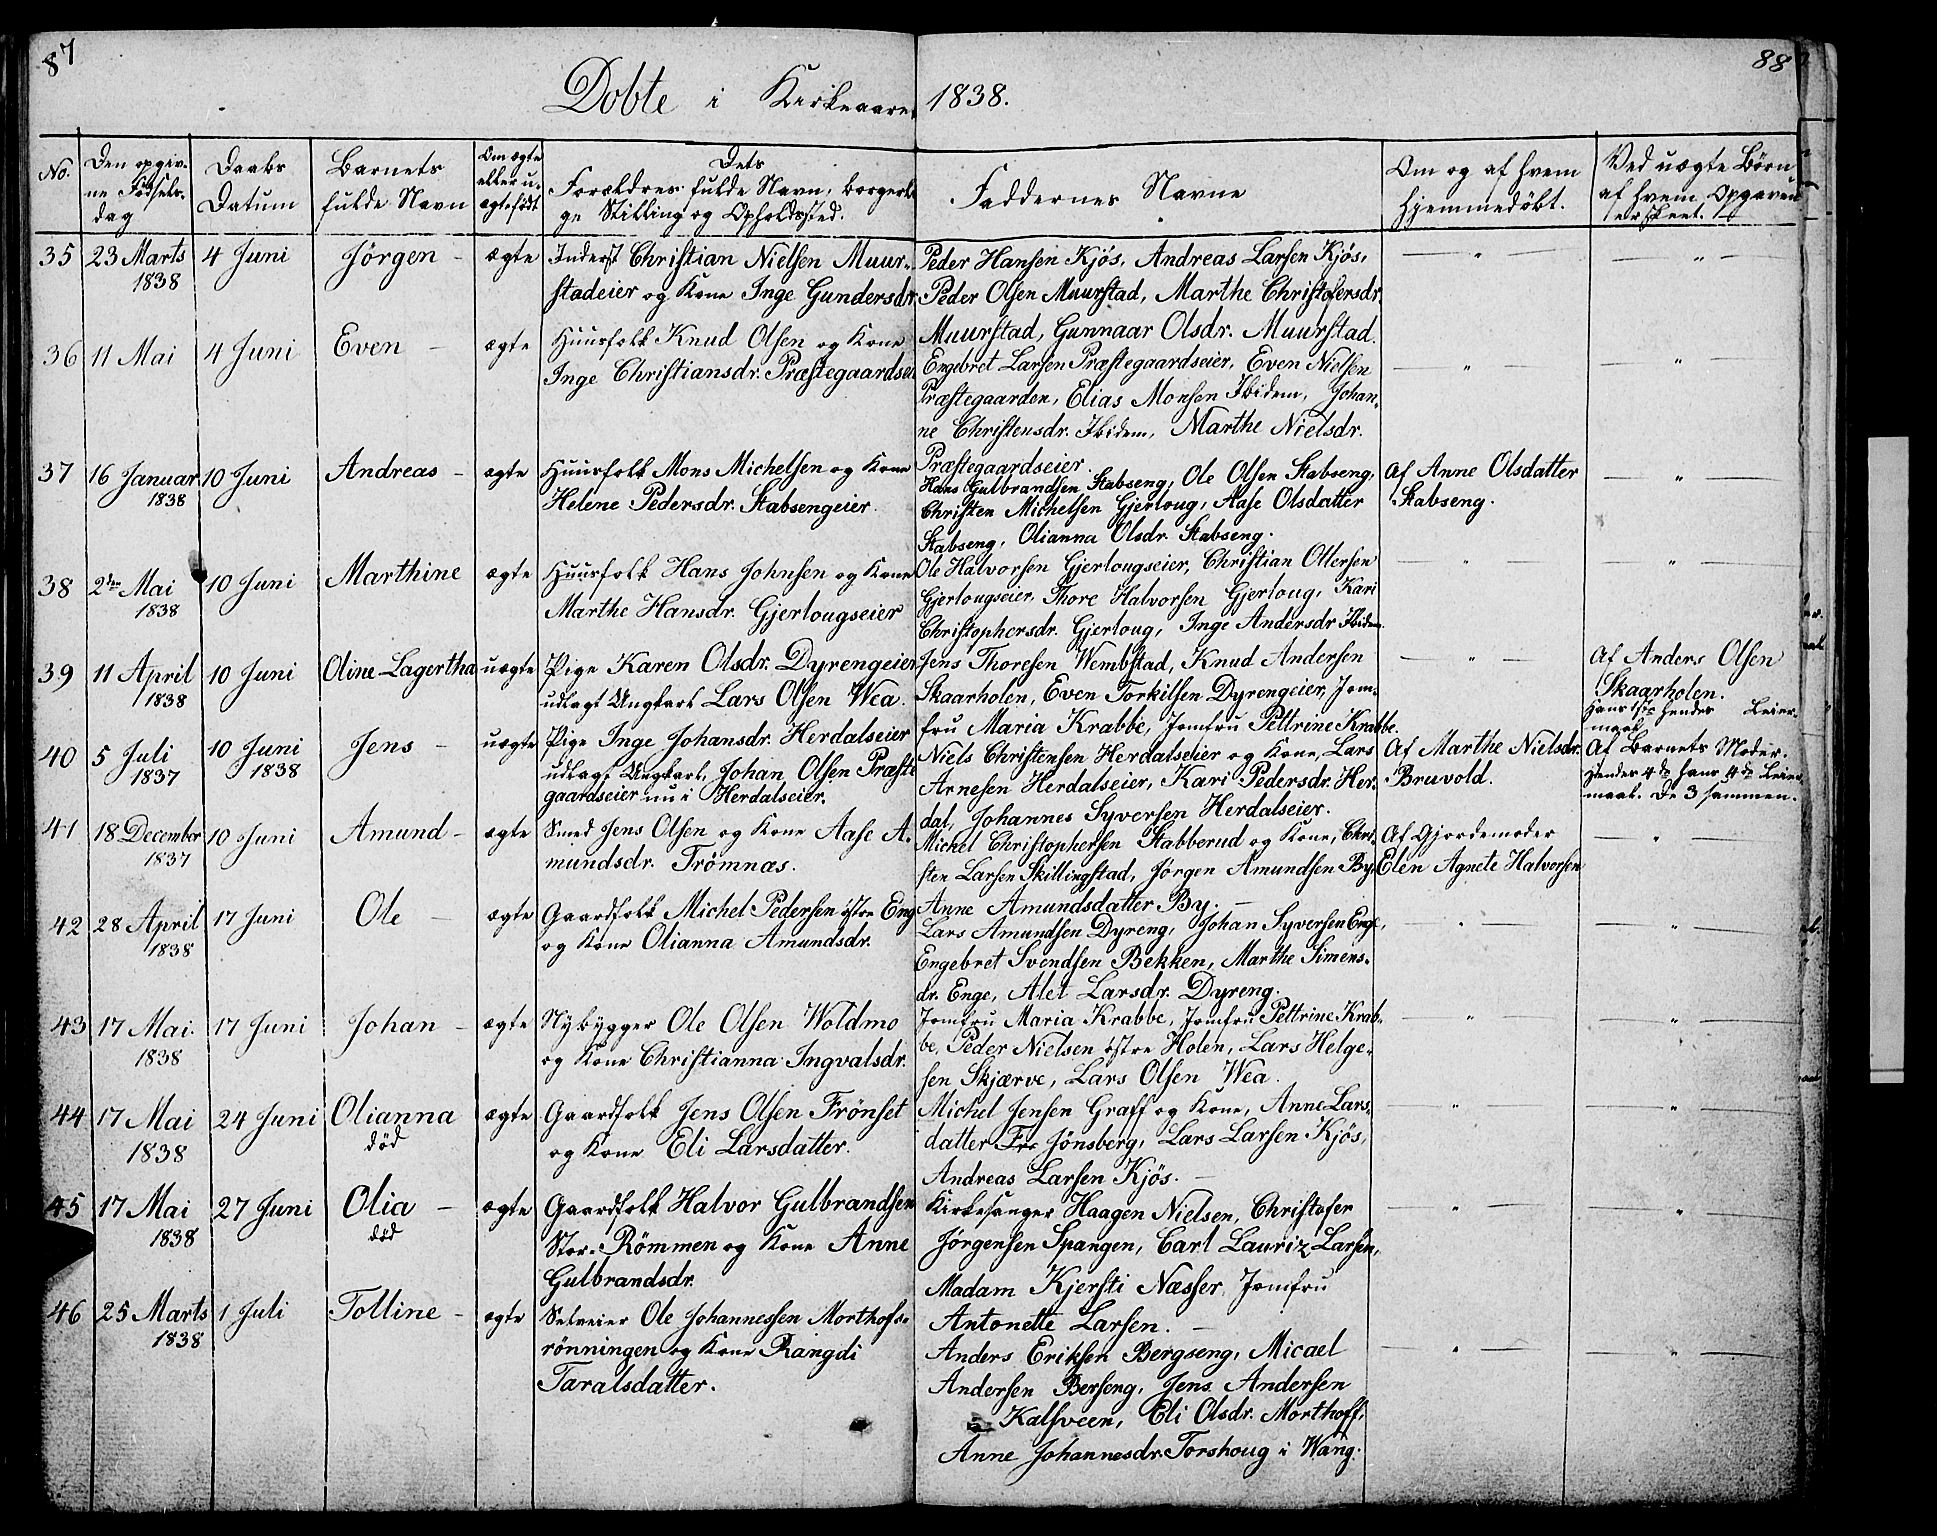 87
88
Dobte i Kirkeaaret 1838.
No.
Den opgiv-
ne Fødsels-
dag
Daabs
Datum
Barnets
fulde Navn
Om ægte
eller u-
ægtefødt
Dets
Forældres fulde Navn, borgerli-
ge Stilling og Opholdssted.
Faddernes Navne
Om og af hvem
hjemmedøbt.
Ved uægte Børn
af hvem Opgaven
er skeet.
35 23 Marts 4 Juni Jörgen - ægte Inderst Christian Nielsen Muur-
1838 stadeier og Kone Inge Gundersdr.
Peder Hansen Kjös, Andreas Larsen Kjös,
Peder Olsen Muurstad, Marthe Christofersdr.
Muurstad, Gunnaar Olsdr. Muurstad.
— " — — " —
36 11 Mai 4 Juni Even - ægte Huusfolk Knud Olsen og Kone
Inge Christiansdr. Præstegaardseier
Engebret Larsen Præstegaardseier, Even Nielsen
Præstegaarden, Elias Monsen Ibidem, Johan-
ne Christensdr. Ibidem, Marthe Nielsdr.
Præstegaardseier.
— " — — " —
37 16 Januar 10 Juni Andreas - ægte Huusfolk Mons Michelsen og Kone
1838 Helene Pedersdr. Stabsengeier.
Hans Gulbrandsen Stabseng, Ole Olsen Stabseng,
Christen Michelsen Gjerloug, Aase Olsdatter
Stabseng, Olianna Olsdr. Stabseng.
Af Anne Olsdatter
Stabseng.
— " —
38 2den Mai 10 Juni Marthine ægte Huusfolk Hans Johnsen og Kone
1838 Marthe Hansdr. Gjerlougseier
Ole Halvorsen Gjerlougseier, Christian Ottersen
Gjerlougseier, Thore Halvorsen Gjerloug, Kari
Christophersdr. Gjerloug, Inge Andersdr Ibidem.
— " — — " —
39 11 April 10 Juni Oline Lagertha uægte Pige Karen Olsdr. Dyrengeier
1838 udlagt Ungkarl Lars Olsen Wea.
Jens Thoresen Wembstad, Knud Andersen
Skaarholen, Even Torkilsen Dyrengeier, Jom-
fru Maria Krabbe, Jomfru Pettrine Krabbe.
— " —
Af Anders Olsen
Skaarholen.
hans 1ste hendes Leier-
maal.
40 5 Juli 10 Juni Jens - uægte Pige Inge Johansdr. Herdalseier
1837 1838 udlagt Ungkarl, Johan Olsen Præste
gaardseier nu i Herdalseier.
Niels Christensen Herdalseier og Kone, Lars
Arnesen Herdalseier, Kari Pedersdr. Her-
dal, Johannes Syversen Herdalseier.
Af Marthe Nielsdr.
Bruvold.
Af Barnets Moder.
hendes 4de hans 4de Leier
maal. De 3 sammen.
41 18 December 10 Juni Amund - ægte Smed Jens Olsen og Kone Aase A-
1837 mundsdr. Trömnæs.
Michel Christophersen Stabberud og Kone, Chri-
sten Larsen Skillingstad, Jörgen Amundsen By,
Anne Amundsdatter By. —
Af Gjordemoder
Elen Agnete Halvorsen
— " —
42 28 April 17 Juni Ole - ægte Gaardfolk Michel Pedersen østre Eng
1838 og Kone Olianna Amundsdr.
Lars Amundsen Dyreng, Johan Syversen Enge,
Engebret Svendsen Bekken, Marthe Simens-
dr. Enge, Alet Larsdr. Dyreng.
— " — — " —
43 17 Mai. 17 Juni Johan - ægte Nybygger Ole Olsen Woldmo
1838 og Kone Christianna Ingvalsdr.
Jomfru Maria Krabbe, Jomfru Pettrine Krab-
be, Peder Nielsen østre Holen, Lars Helge-
sen Skjærve, Lars Olsen Wea.
— " — — " —
44 17 Mai 24 Juni Olianna ægte Gaardfolk Jens Olsen Frönset
1838 død og Kone Eli Larsdatter.
Michel Jensen Graff og Kone, Anne Lars-
datter Fro Jönsberg, Lars Larsen Kjös,
Andreas Larsen Kjös. —
— " — — " —
45 17 Mai 27 Juni Olia - ægte Gaardfolk Halvor Gulbrandsen
1838 død Stor-Römmen og Kone Anne
Gulbrandsdr.
Kirkesanger Haagen Nielsen, Christofer
Jörgensen Spangen, Carl Lauriz Larsen,
Madam Kjersti Næsser, Jomfru
Antonette Larsen. —
— " — — " —
46 25 Marts 1 Juli Tolline - ægte Selveier Ole Johannessen Morthofs-
1838 rönningen og Kone Rangdi
Taralsdatter.
Anders Eriksen Bergseng, Micael
Andersen Berseng, Jens Andersen
Kalsveen, Eli Olsdr. Morthoff,
Anne Johannesdr. Torshoug i Wang.
— " — — " —